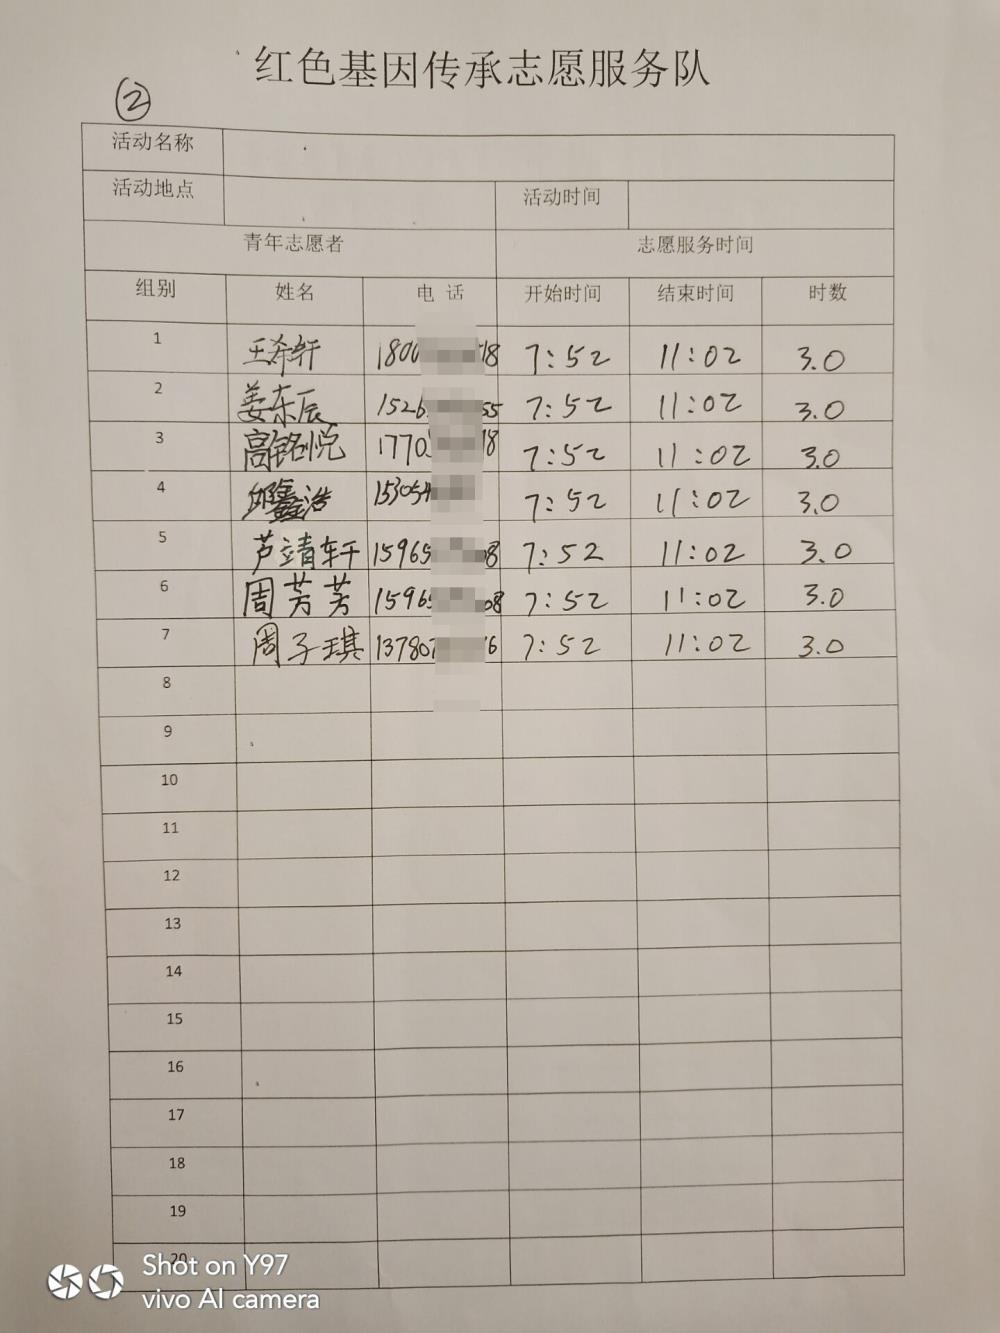 红色基因传承志愿服务队
②
活动名称
活动地点 活动时间
青年志愿者 志愿服务时间
组别 姓名 电 话 开始时间 结束时间 时数
1 王希轩 180 18 7:52 11:02 3.0
2 姜东辰 1526 55 7:52 11:02 3.0
3 高铭悦 1770 18 7:52 11:02 3.0
4 邱鑫浩 153054 7:52 11:02 3.0
5 芦靖轩 15965 08 7:52 11:02 3.0
6 周芳芳 15965 08 7:52 11:02 3.0
7 周子琪 13780 6 7:52 11:02 3.0
8
9
10
11
12
13
14
15
16
17
18
19
20
Shot on Y97
vivo AI camera